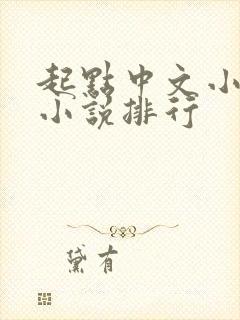 起點中文小
小說排行
黛有